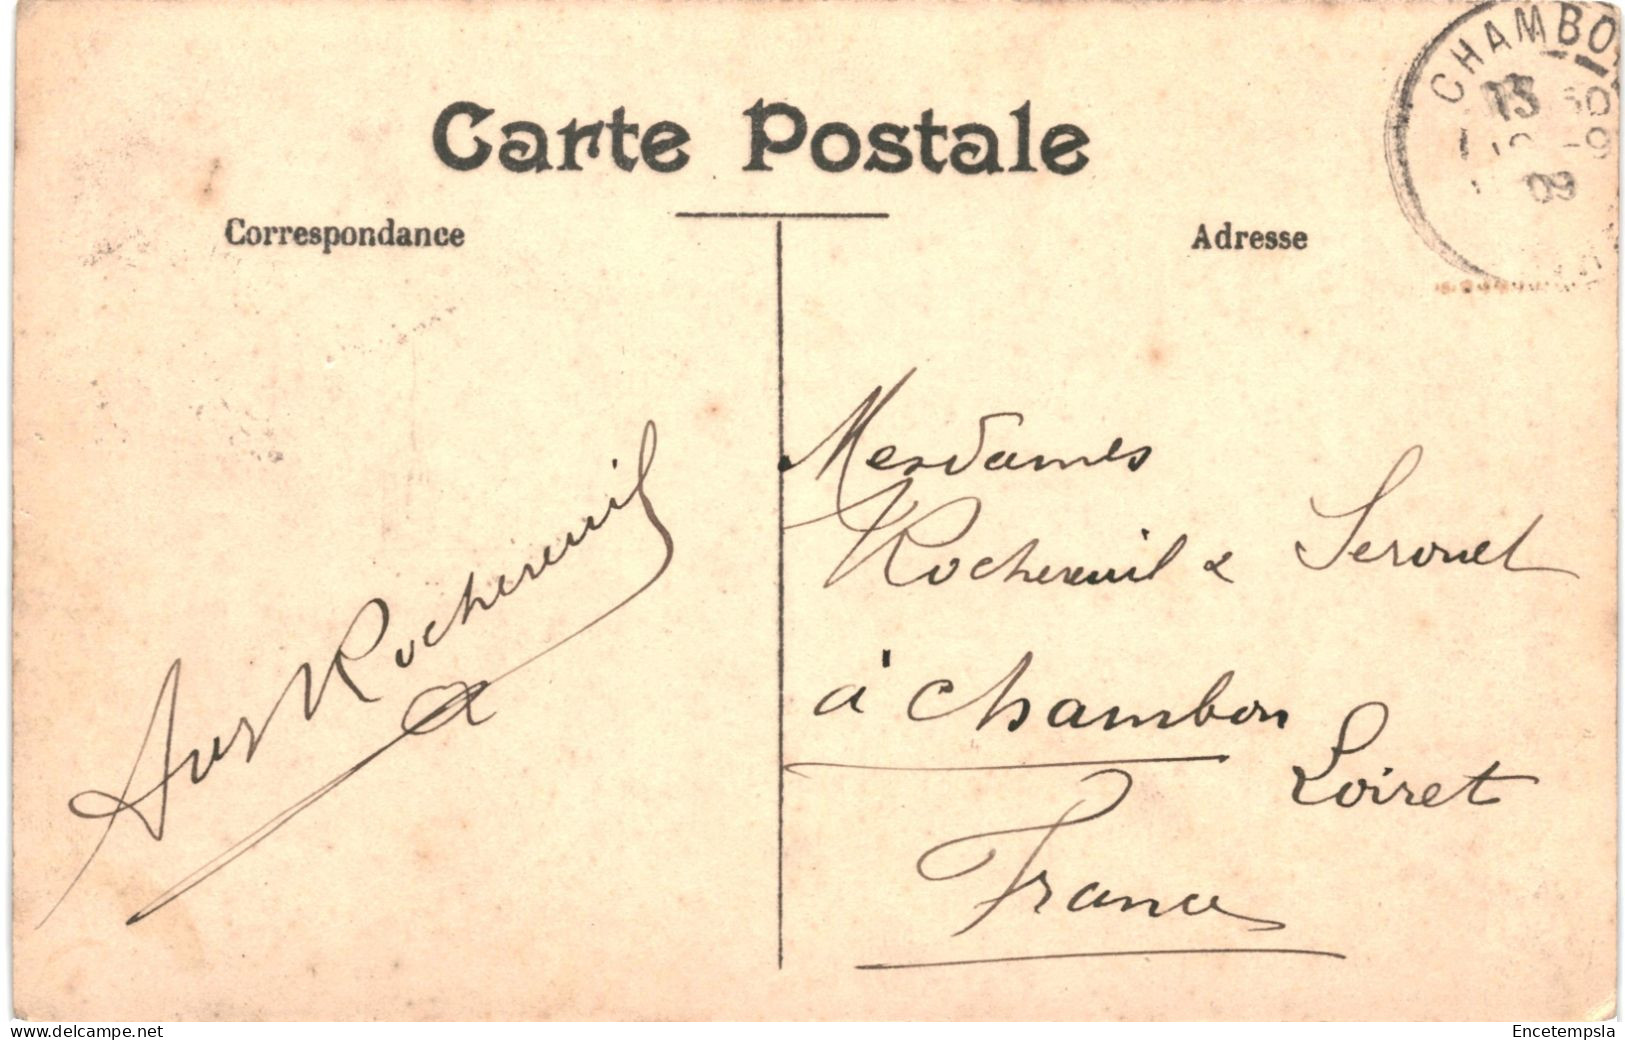 CHAMBO
13
09
Carte Postale
Correspondance
Adresse
Mesdames
Rochereuil & Serouet
à Chambon
Loiret
France
Rochereuil
www.delcampe.net
Encetempsla